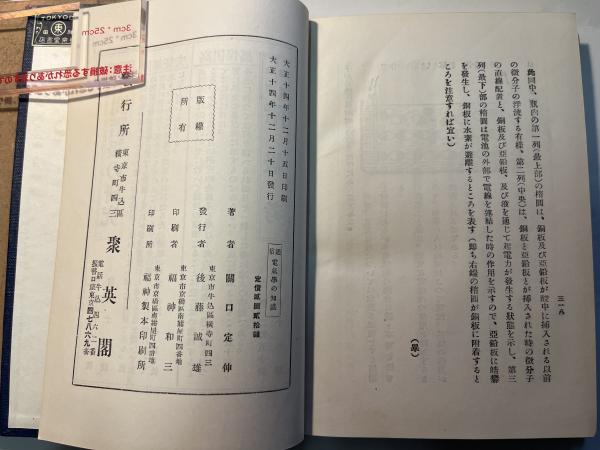 三一八
此圖中、瓶内の第一列(最上部)の楕圓は、銅板及亞鉛板が酸中に挿入される以前
の微分子の浮流する有樣、第二列(中央)は、銅板と亞鉛板とが挿入された時の微分子
の直線配置と、銅板及び亞鉛板、及び液を通じて起電力が發生する狀態を示し、第三
列(最下)部の楕圓は電池の外部で電線を連結した時の作用を示すので、亞鉛板に
を發生し、銅板に水素が遊離するところを表す(卽ち右線の楕圓が銅板に附着すると
ころを注意すれば宜い)
(畢)
大正十四年十二月十五日印刷
大正十四年十二月二十日發行
版權
所有
電氣學の知識
定價貳圓貳拾錢
著者 關口定伸
東京市牛込區橫寺町四三
發行者 後藤誠雄
東京市京橋區南鍋屋町四番地
印刷者 福神和三
東京市京橋區南鍋屋町四番地
印刷所 福神製本印刷所
發行所
東京市牛込區
橫寺町四三
聚英閣
電話牛込六二一番
振替口座東京四七八六九番
3cm * 25cm
3cm * 25cm
注意・破損する恐れがあります
TOKYO
東